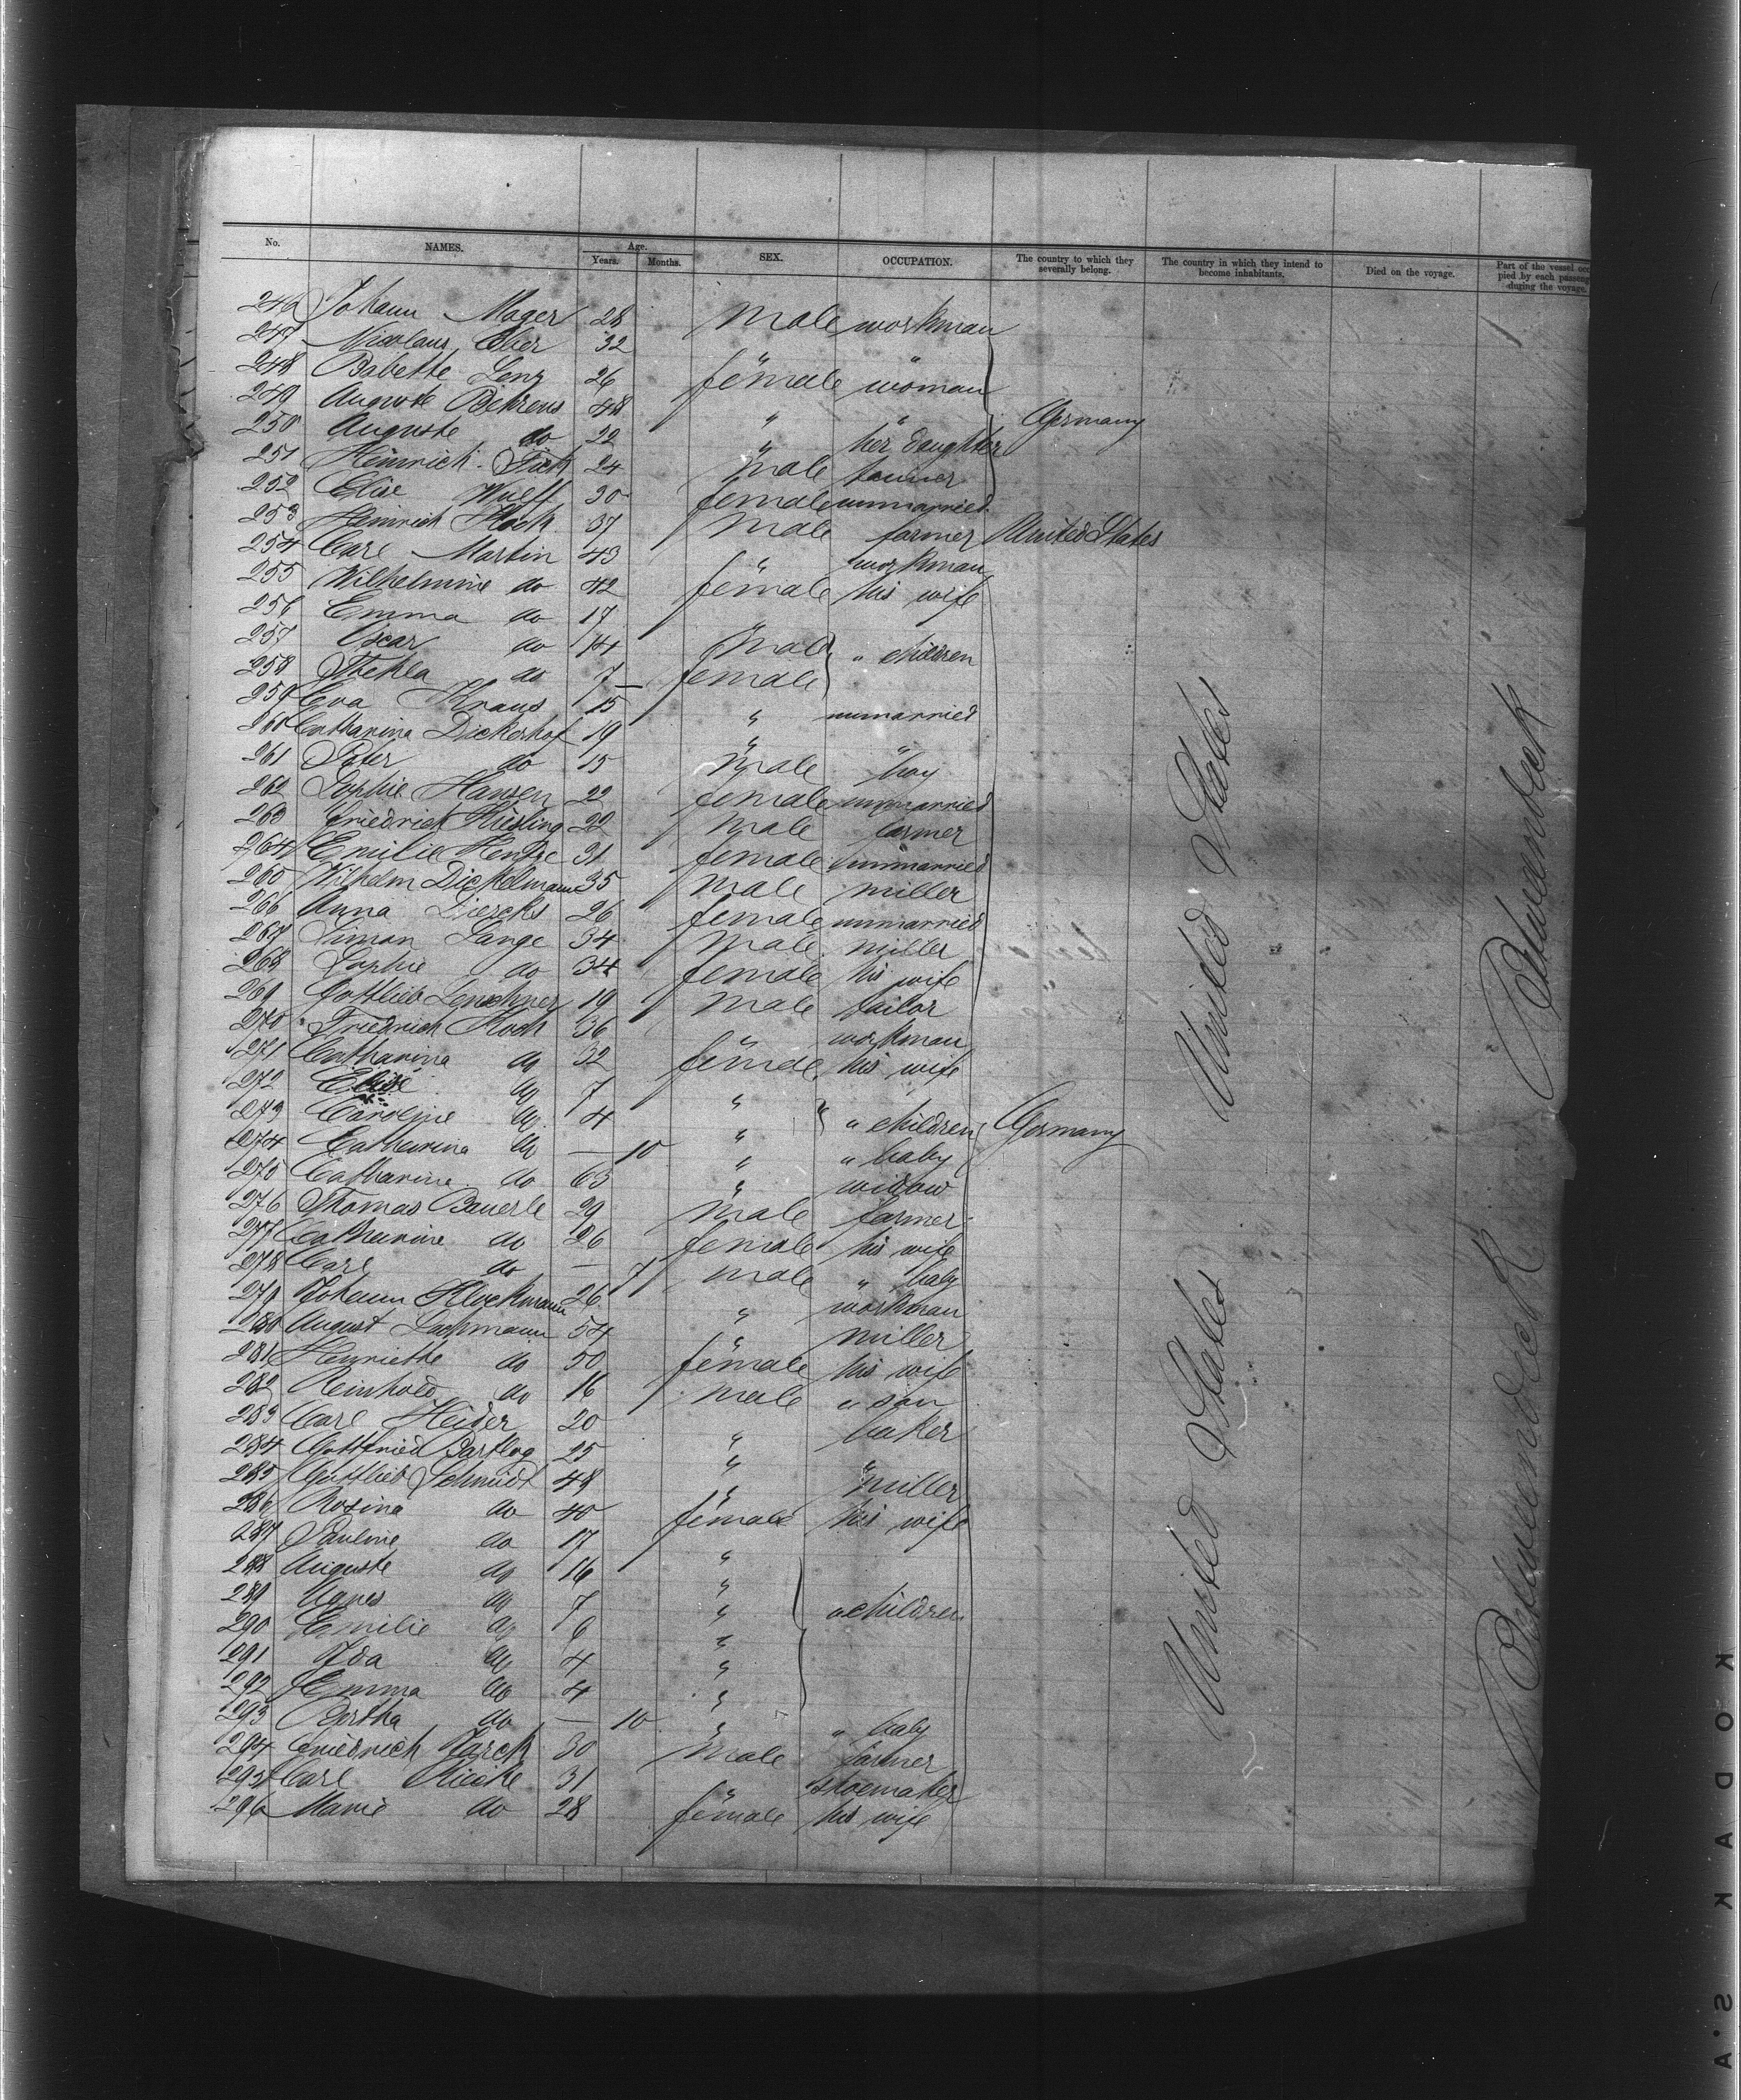 No. NAMES. Age. Years. Months. SEX. OCCUPATION. The country to which they severally belong. The country in which they intend to become inhabitants. Died on the voyage. Part of the vessel occupied by each passenger during the voyage.
246 Johann Mager 28 male workman
247 Nicolaus Eber 32 " "
248 Babette Lenz 26 female woman
249 Auguste Behrens 48 " " Germany
250 Auguste do 22 " her daughter
251 Heinrich 24 male farmer
252 Elise Wulff 30 female unmarried
253 Heinrich Koch 37 male farmer United States
254 Carl Martin 43 " workman
255 Wilhelmine do 42 female his wife
256 Emma do 17 "
257 Oscar do 14 male " children
258 Thekla do 7 female
259 Eva Kraus 15 " unmarried
260 Catharina Dickerhof 19 " "
261 Peter do 15 male boy
262 Sophie Hansen 22 female unmarried
263 Friedrich 22 male farmer
264 Emilie Hentze 31 female unmarried
265 Wilhelm Dickelmann 35 male miller
266 Anna Diercks 26 female unmarried
267 Simon Lange 34 male miller
268 Sophie do 34 female his wife
269 Gottlieb 19 male tailor
270 Friedrich Koch 36 " workman
271 Catharina do 32 female his wife
272 Elise do 7 "
273 Caroline do 4 " " children Germany
274 Catharina do — 10 " " baby
275 Catharine do 63 " widow
276 Thomas Bauerle 29 male farmer
277 Catharine do 26 female his wife
278 Carl do — 7 male " baby
279 Johann Kluckmann 26 " workman
280 August Lachmann 54 " miller
281 Henriette do 50 female his wife
282 Reinhold do 16 male " son
283 Carl Heider 20 " baker
284 Gottfried Bartlog 25 " "
285 Gottlieb Schmidt 48 " miller
286 Rosina do 40 female his wife
287 Pauline do 17 "
288 Auguste do 16 "
289 Agnes do 7 " " children
290 Emilie do 6 "
291 Ida do 4 "
292 Emma do 4 "
293 Bertha do — 10 " " baby
294 Friedrich Jarck 30 male farmer
295 Carl 31 " shoemaker
296 Marie do 28 female his wife
United States
United States
KODAK S.A